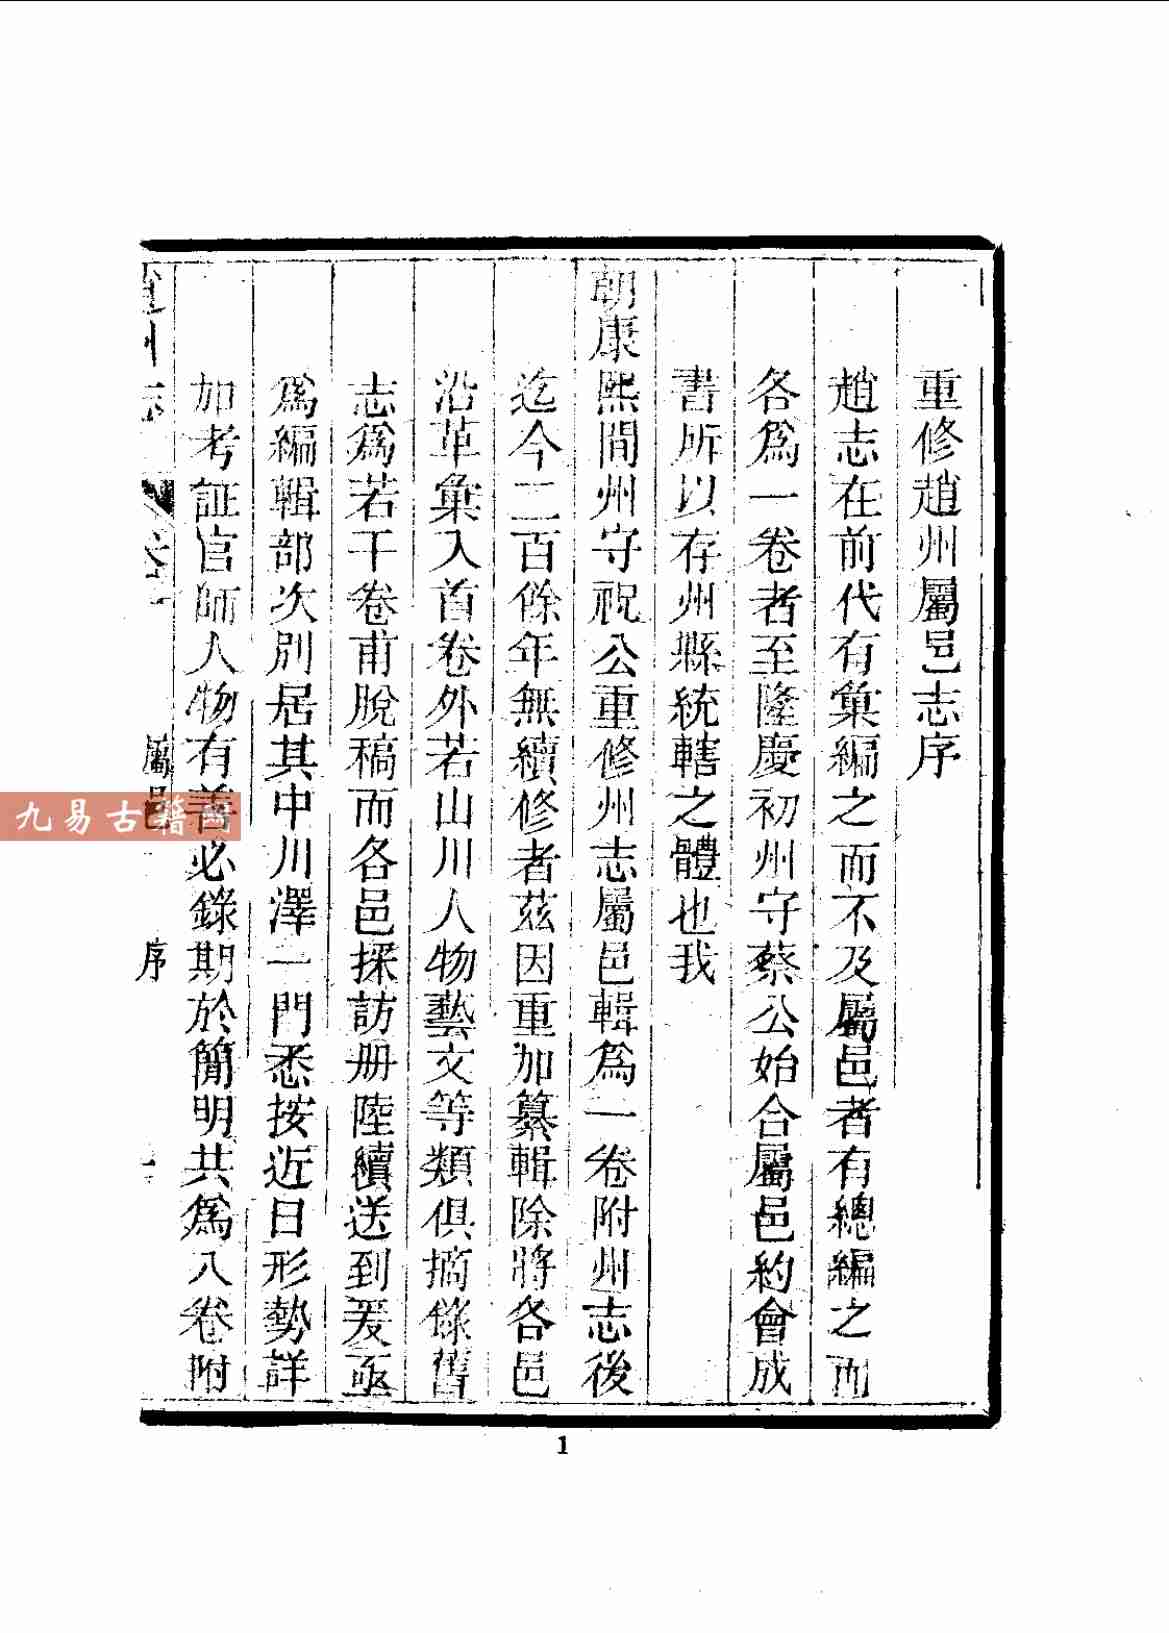 重修趙州屬邑志序
趙志在前代有彙編之而不及屬邑者有總編之而
各爲一卷者至隆慶初州守蔡公始合屬邑約會成
書所以存州縣統轄之體也我
朝康熙間州守祝公重修州志屬邑輯爲一卷附州志後
迄今二百餘年無續修者茲因重加纂輯除將各邑
沿革彙入首卷外若山川人物藝文等類俱摘錄舊
志爲若干卷甫脫稿而各邑採訪册陸續送到爰亟
爲編輯部次別居其中川澤一門悉按近日形勢詳
加考証官師人物有善必錄期於簡明共爲八卷附
州志
屬邑
序
九易古籍网
1